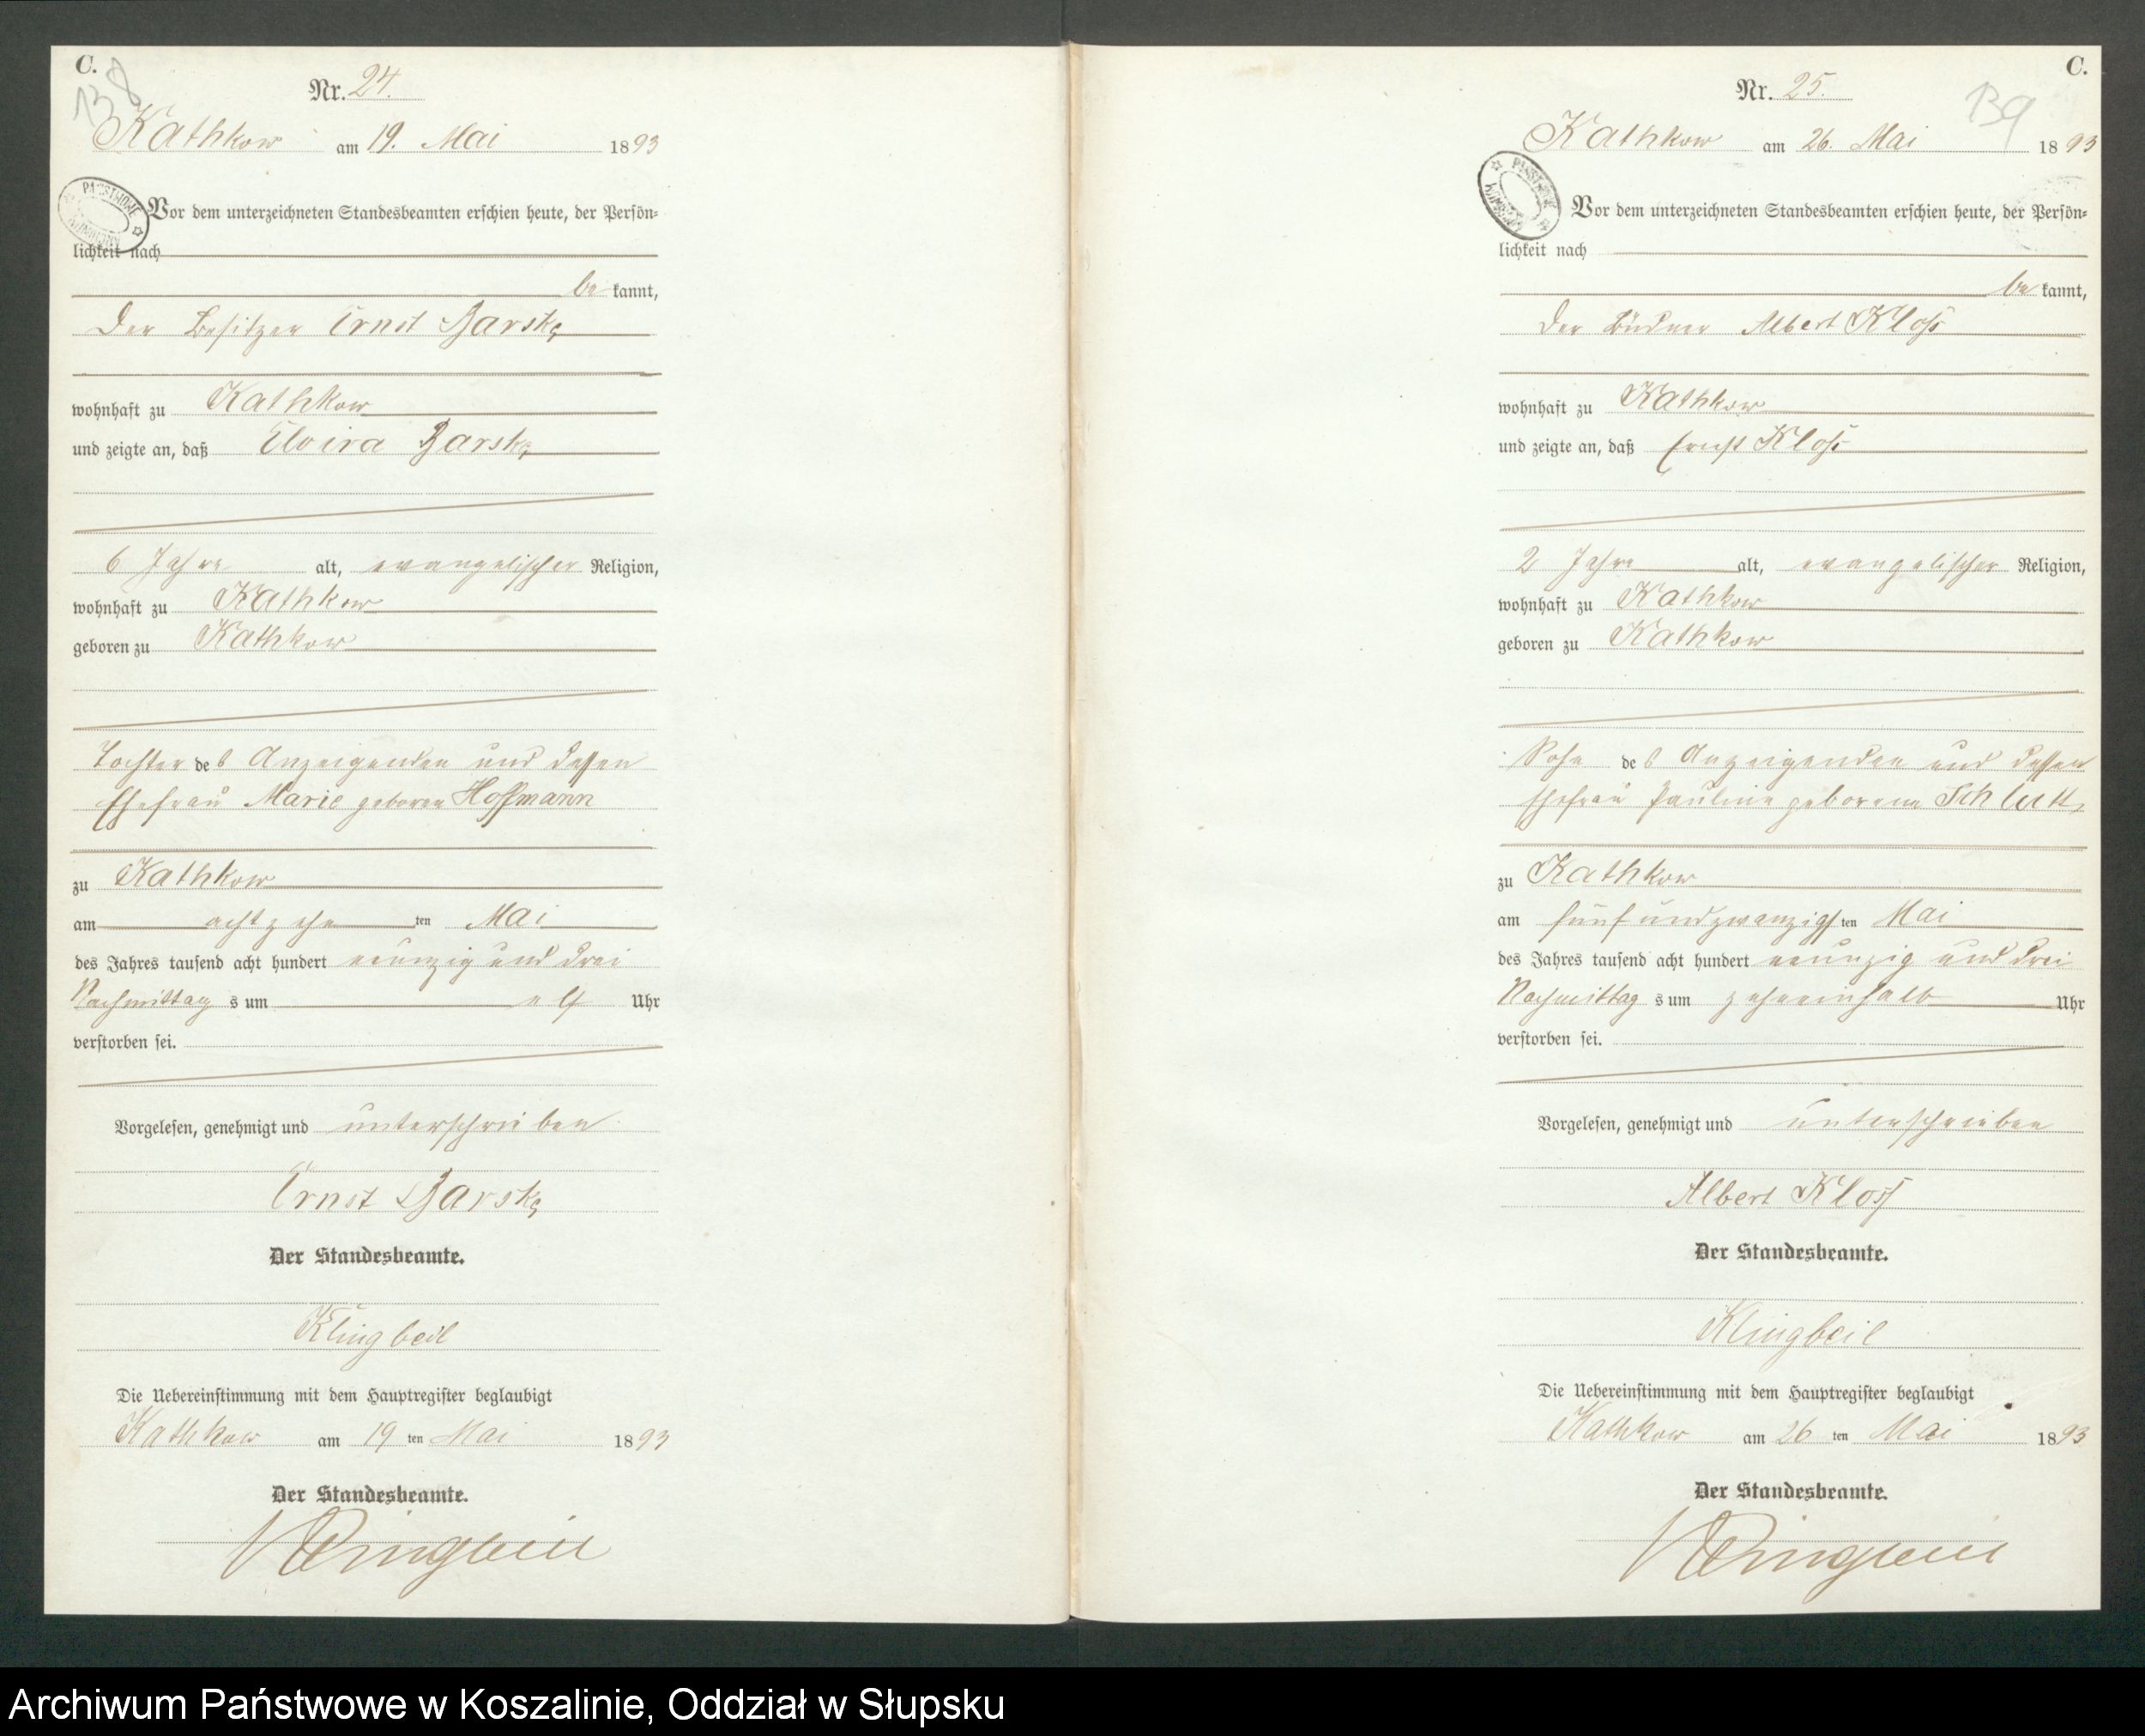 C.
138
Nr. 24.
Kathkow am 19. Mai 1893
PAŃSTWOWE
Vor dem unterzeichneten Standesbeamten erschien heute, der Persön=
lichkeit nach
be kannt,
der Besitzer Ernst Barske
wohnhaft zu Kathkow
und zeigte an, daß Elvira Barske
6 Jahre alt, evangelischer Religion,
wohnhaft zu Kathkow
geboren zu Kathkow
Tochter des Anzeigenden und dessen
Ehefrau Marie geboren Hoffmann
zu Kathkow
am achtzehn ten Mai
des Jahres tausend acht hundert neunzig und drei
Nachmittag s um elf Uhr
verstorben sei.
Vorgelesen, genehmigt und unterschrieben
Ernst Barske
Der Standesbeamte.
Klingbeil
Die Uebereinstimmung mit dem Hauptregister beglaubigt
Kathkow am 19 ten Mai 1893
Der Standesbeamte.
Klingbeil
C.
139
Nr. 25.
Kathkow am 26. Mai 1893
PAŃSTWOWE
Vor dem unterzeichneten Standesbeamten erschien heute, der Persön=
lichkeit nach
be kannt,
der Büdner Albert Kloß
wohnhaft zu Kathkow
und zeigte an, daß Ernst Kloß
2 Jahre alt, evangelischer Religion,
wohnhaft zu Kathkow
geboren zu Kathkow
Sohn des Anzeigenden und dessen
Ehefrau Pauline geborene
zu Kathkow
am fünfundzwanzigst ten Mai
des Jahres tausend acht hundert neunzig und drei
Nachmittag s um zehneinhalb Uhr
verstorben sei.
Vorgelesen, genehmigt und unterschrieben
Albert Kloss
Der Standesbeamte.
Klingbeil
Die Uebereinstimmung mit dem Hauptregister beglaubigt
Kathkow am 26 ten Mai 1893
Der Standesbeamte.
Klingbeil
Archiwum Państwowe w Koszalinie, Oddział w Słupsku